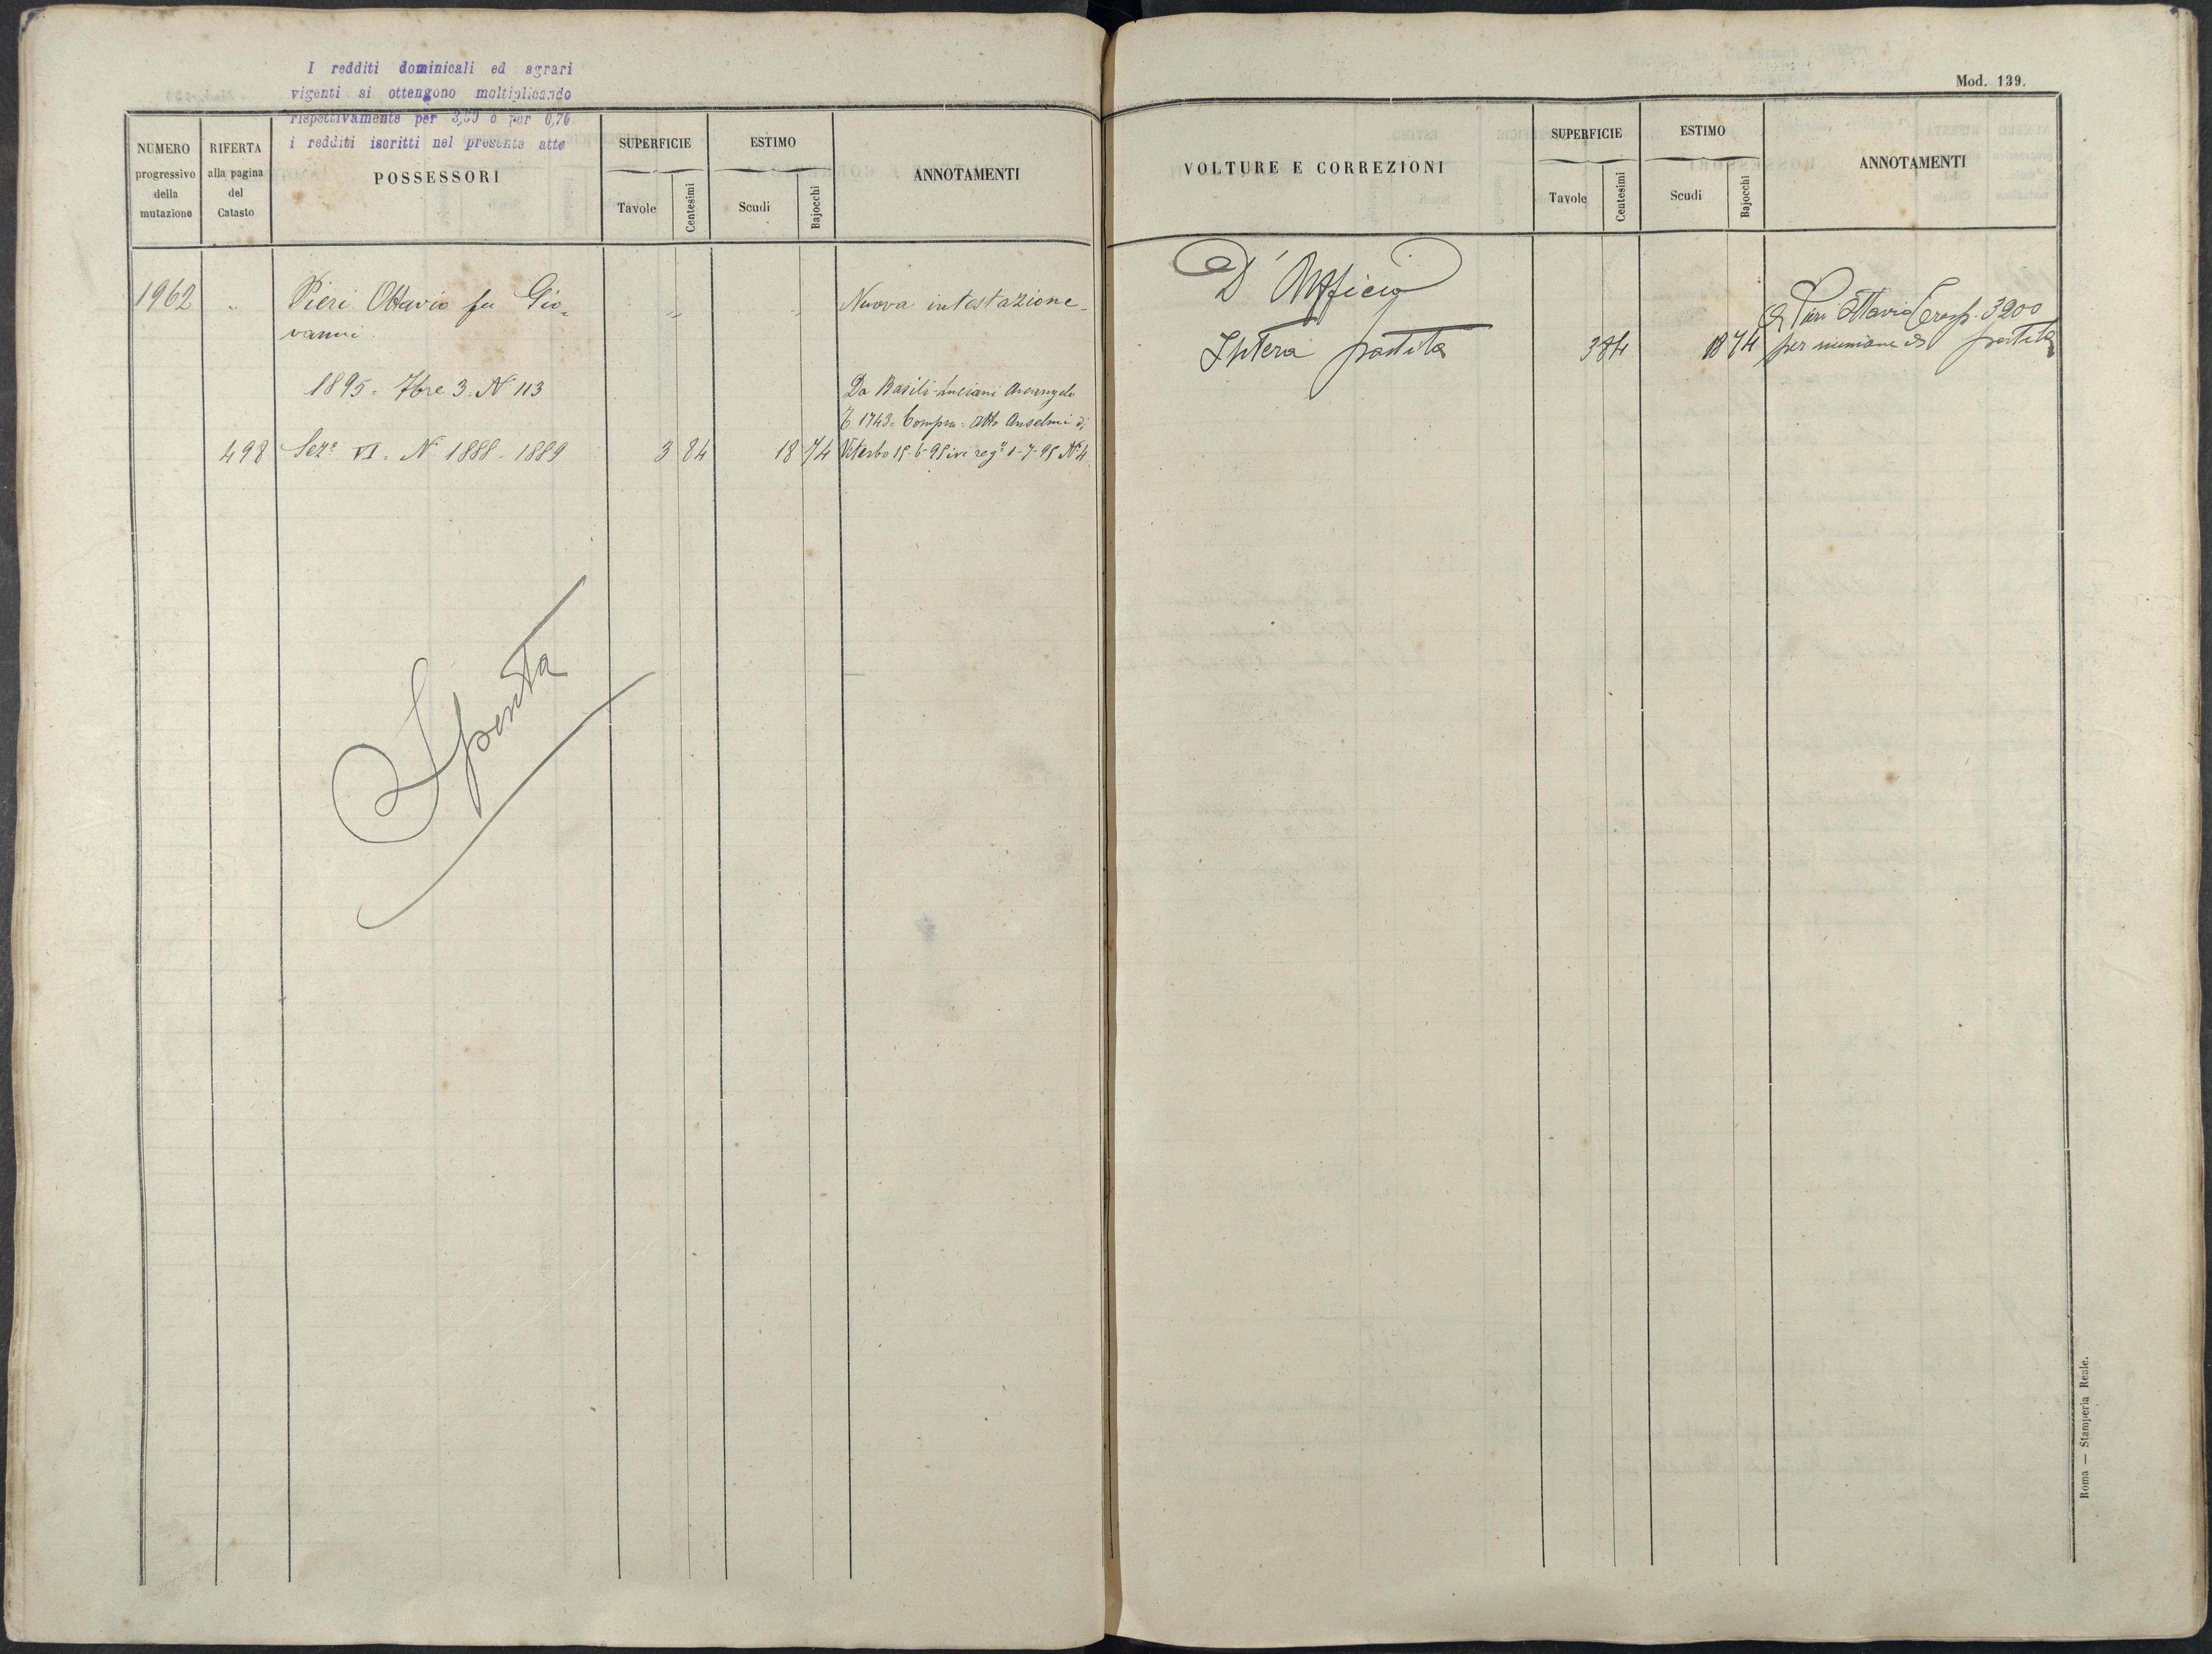 I redditi dominicali ed agrari
vigenti si ottengono moltiplicando
rispettivamente per 3,50 e per 0,76
i redditi iscritti nel presente atto
NUMERO
progressivo
della
mutazione
RIFERTA
alla pagina
del
Catasto
POSSESSORI
SUPERFICIE
Tavole
Centesimi
ESTIMO
Scudi
Bajocchi
ANNOTAMENTI
1962 " Pieri Ottavio fu Gio= " " Nuova intestazione
vanni
1895. 7bre 3. N 113 Da Basili-Luciani Arcangelo
1743. Compra. Atto Anselmi di
498 Sez.e VI. N 1888. 1889 3 84 18 74 Viterbo 15-6-95 ivi reg° 1-7-95 N° 4
Spenta
Mod. 139.
VOLTURE E CORREZIONI
SUPERFICIE
Tavole
Centesimi
ESTIMO
Scudi
Bajocchi
ANNOTAMENTI
D'Ufficio
A Pieri Ottavio 3200
Intera partita 3 84 18 74 per riunione di partita
Roma — Stamperia Reale.